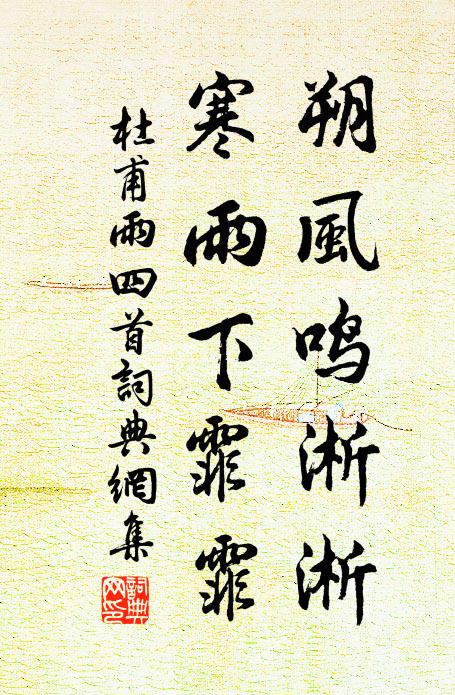 朔風鸣淅淅
寒雨下霏霏
杜甫雨四首詞典網集
詞典
网印